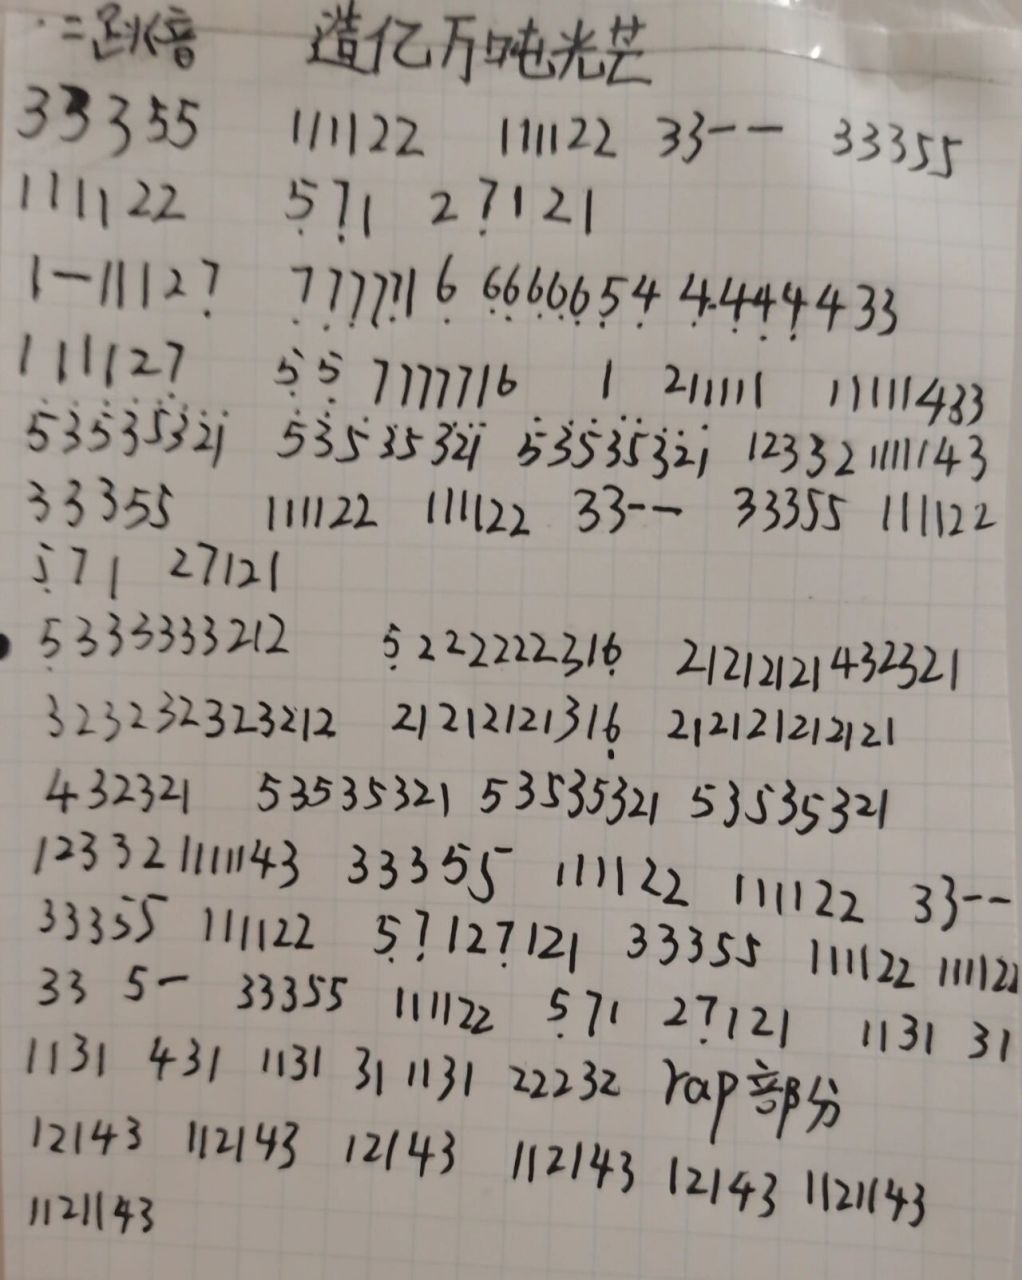 造亿万吨光芒
33355 111122 111122 33-- 33355
111122 5̣7̣1 27̣121
1-11127̣ 7̣7̣7̣7̣7̣16̣ 6̣6̣6̣6̣6̣5̣4̣ 4̣4̣4̣4̣433
111127̣ 5̣5̣ 7777716 1 211111 11111433
5̇3̇5̇3̇5̇3̇2̇1̇ 5̇3̇5̇3̇5̇3̇2̇1̇ 5̇3̇5̇3̇5̇3̇2̇1̇ 12332 1111143
33355 111122 111122 33-- 33355 111122
5̣71 27121
5̣3333333212 5̣222222316̣ 21212121432321
323232323212 21212121316̣ 212121212121
432321 53535321 53535321 53535321
12332 1111143 33355 111122 111122 33--
33355 111122 5̣7̣127̣121 33355 111122 111122
33 5- 33355 111122 5̣71 27̣121 1131 31
1131 431 1131 31 1131 22232 rap部分
12143 112143 12143 112143 12143 1121143
1121143